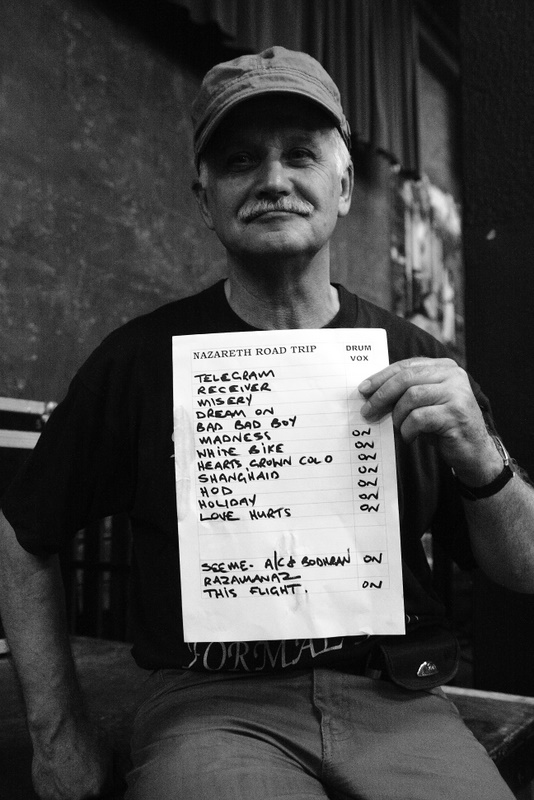 NAZARETH ROAD TRIP DRUM
VOX
TELEGRAM
RECEIVER
MISERY
DREAM ON
BAD BAD BOY
MADNESS ON
WHITE BIKE ON
HEARTS GROWN COLD ON
SHANGHAID ON
HOD ON
HOLIDAY ON
LOVE HURTS ON
SEE ME. A/C & BODHRAN ON
RAZAMANAZ
THIS FLIGHT. ON